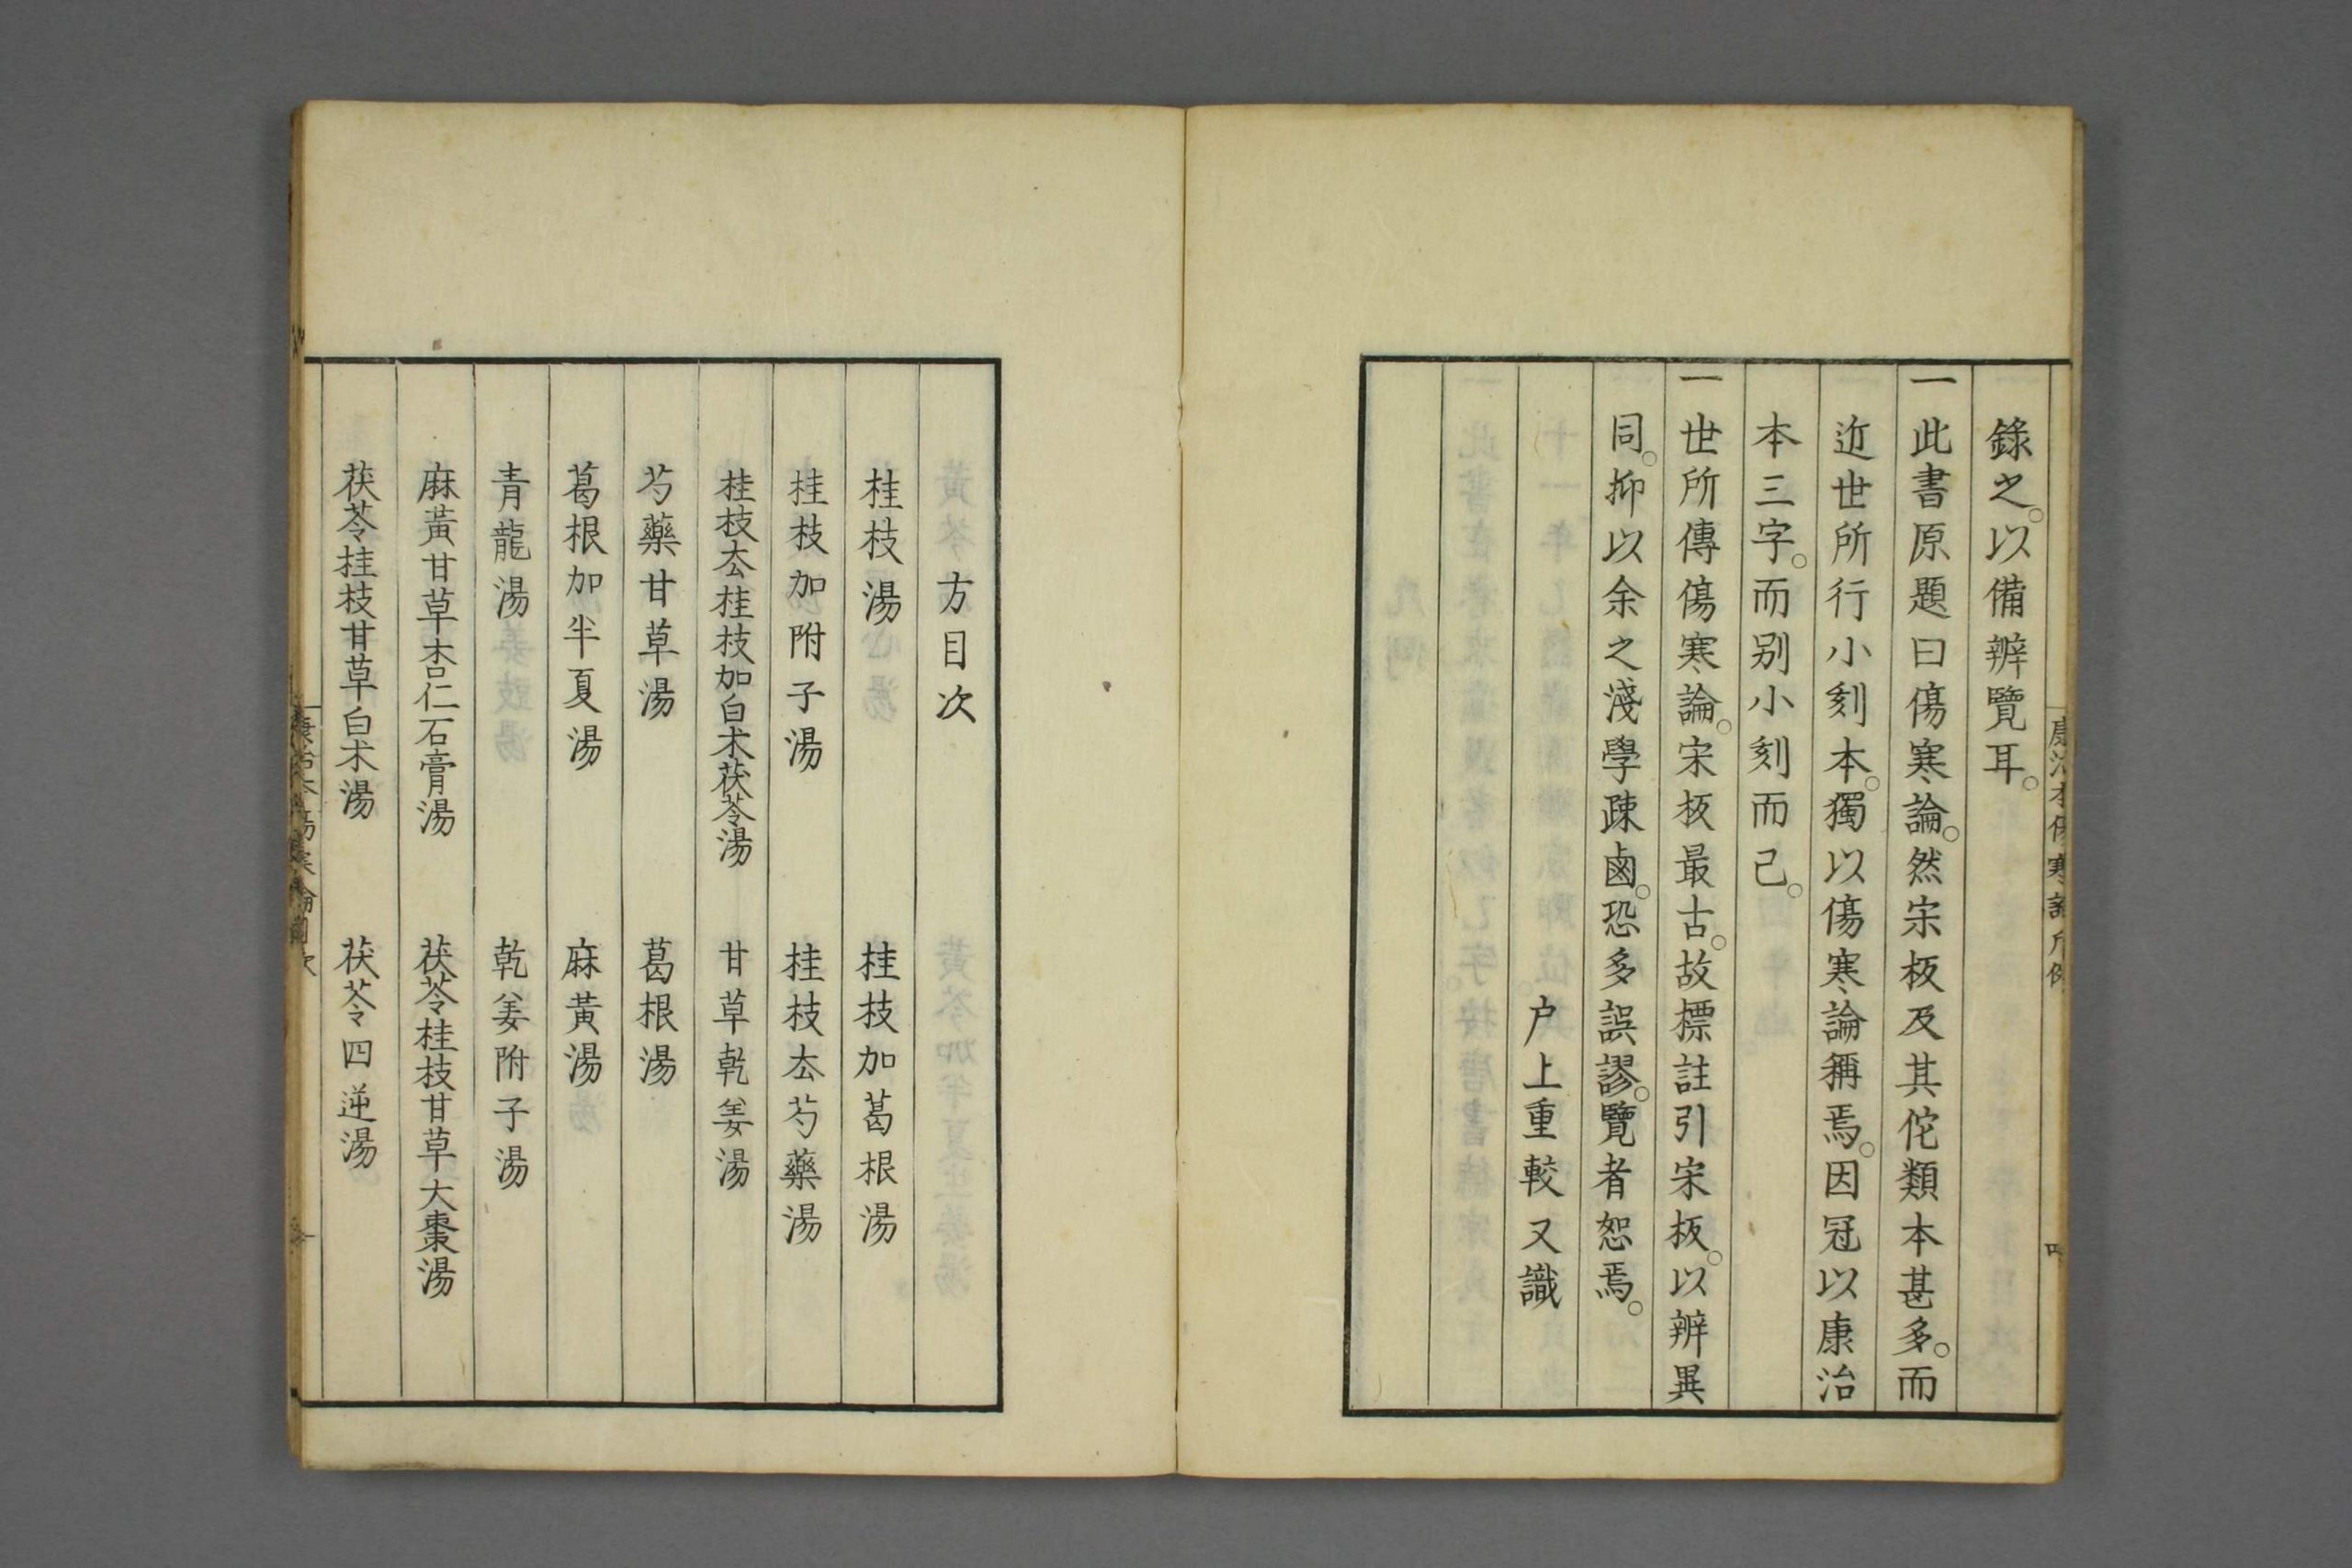 錄之。以備辨覽耳。
一此書原題曰傷寒論。然宋板及其佗類本甚多。而
近世所行小刻本。獨以傷寒論稱焉。因冠以康治
本三字。而别小刻而已。
一世所傳傷寒論。宋板最古。故標註引宋板。以辨異
同。抑以余之淺學疎鹵。恐多誤謬。覽者恕焉。
户上重較又識
方目次
桂枝湯　桂枝加葛根湯
桂枝加附子湯　桂枝厺芍藥湯
桂枝厺桂枝加白朮茯苓湯　甘草乾姜湯
芍藥甘草湯　葛根湯
葛根加半夏湯　麻黃湯
青龍湯　乾姜附子湯
麻黃甘草杏仁石膏湯　茯苓桂枝甘草大棗湯
茯苓桂枝甘草白朮湯　茯苓四逆湯